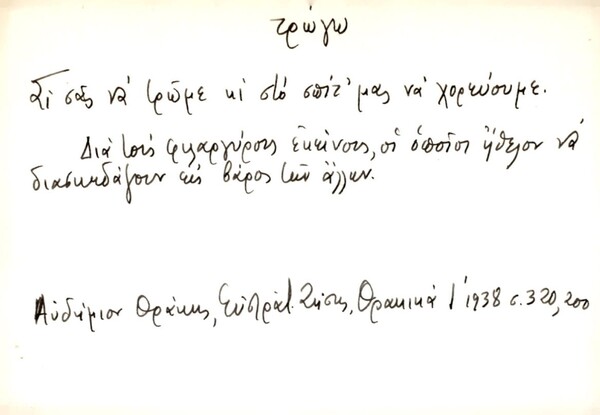 τρώγω
Σι σᾶς νὰ τρῶμε κι στὸ σπίτ' μας νὰ χορεύουμε.
Διὰ τοὺς φιλαργύρους ἐκείνους, οἱ ὁποῖοι ἤθελον νὰ
διασκεδάζουν εἰς βάρος τῶν ἄλλων.
Αὐδήμιον Θράκης, Εὐστράτ. Ζήσης, Θρακικά 1938 σ. 320, 200